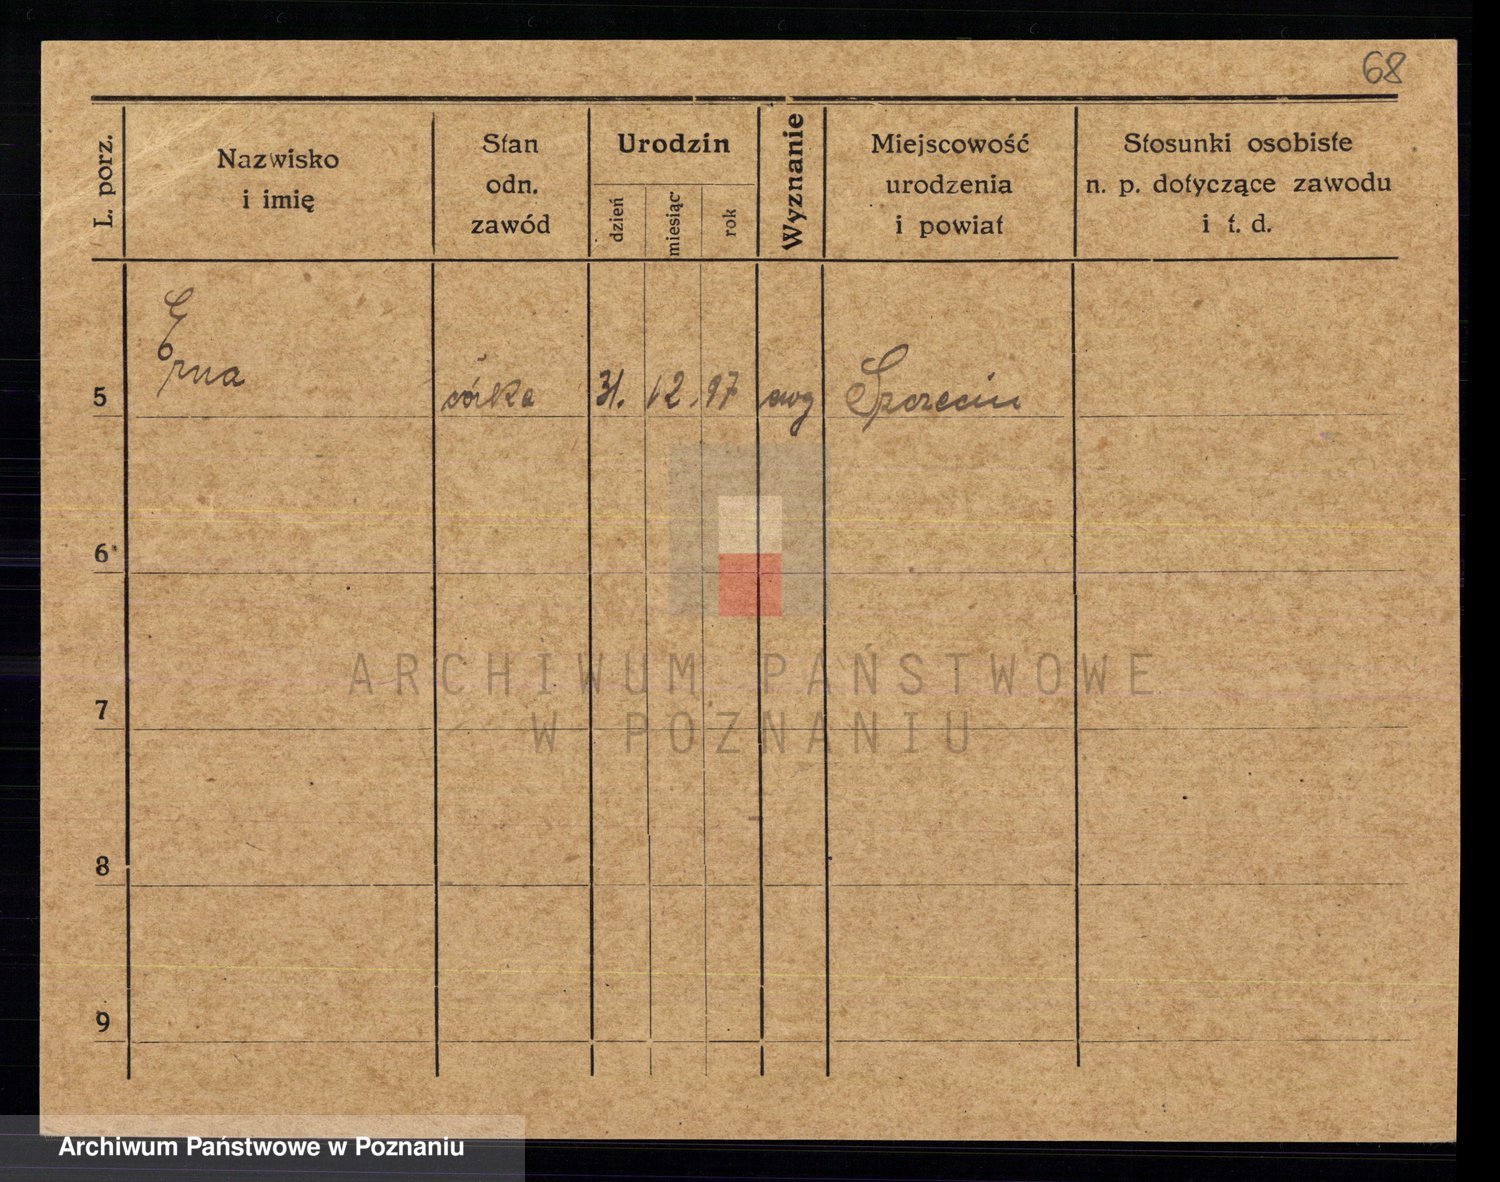 68
L. porz.
Nazwisko
i imię
Stan
odn.
zawód
Urodzin
dzień
miesiąc
rok
Wyznanie
Miejscowość
urodzenia
i powiat
Stosunki osobiste
n. p. dotyczące zawodu
i t. d.
5 Erna córka 31. 12. 97 ewg Szczecin
6
7
8
9
ARCHIWUM PAŃSTWOWE
W POZNANIU
Archiwum Państwowe w Poznaniu